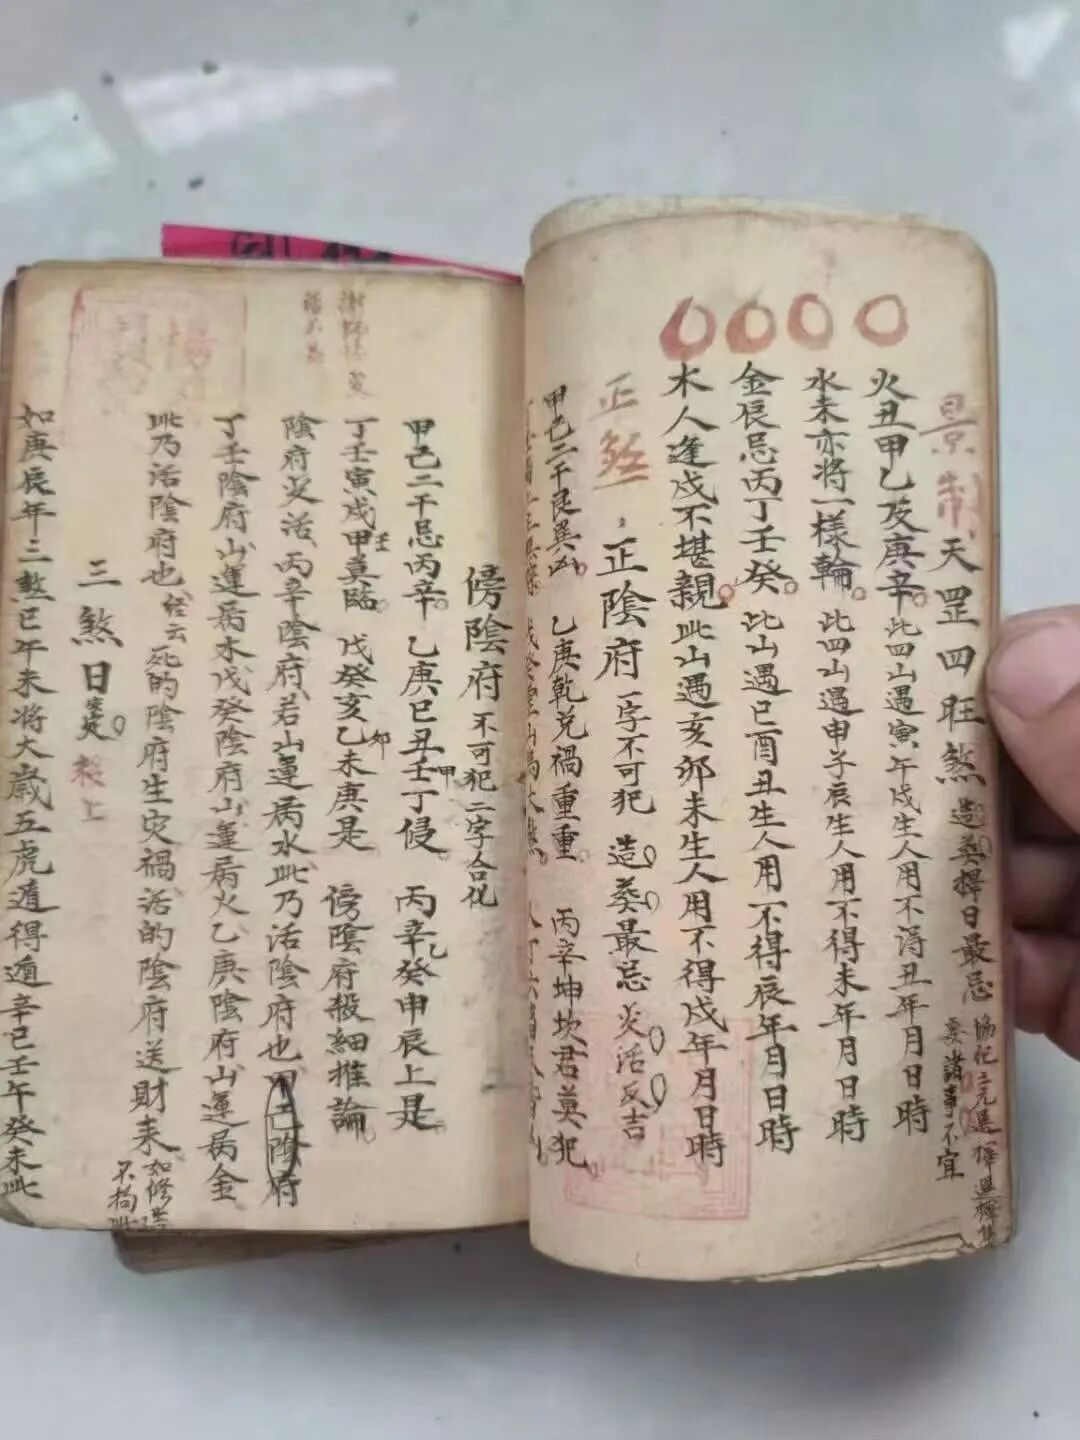 景制
天罡四旺煞 造葬擇日最忌
要諸事不宜
火丑甲乙及庚辛 此四山遇寅午戌生人用不得丑年月日時
水未亦將一樣輪 此四山遇申子辰生人用不得未年月日時
金辰忌丙丁壬癸 此山遇巳酉丑生人用不得辰年月日時
木人逢戌不堪親 此山遇亥卯未生人用不得戌年月日時
正煞
正陰府 一字不可犯 造葬最忌 炎活反吉
甲己二干艮巽凶 乙庚乾兌禍重重 丙辛坤坎君莫犯
傍陰府 不可犯二字合化
甲己二干忌丙辛 乙庚巳丑壬丁侵 丙辛癸申辰上是
甲
乙
丁壬寅戌甲莫臨 戊癸亥乙未庚是 傍陰府殺細推論
壬
卯
陰府炎活 丙辛陰府 若山運屬水 此乃活陰府也 甲己陰府
丁壬陰府山運屬木 戊癸陰府山運屬火 乙庚陰府山運屬金
此乃活陰府也 經云 死的陰府生灾禍 活的陰府送財來
三煞日
如庚辰年三煞巳午未將大歲五虎遁得遁辛巳壬午癸未此